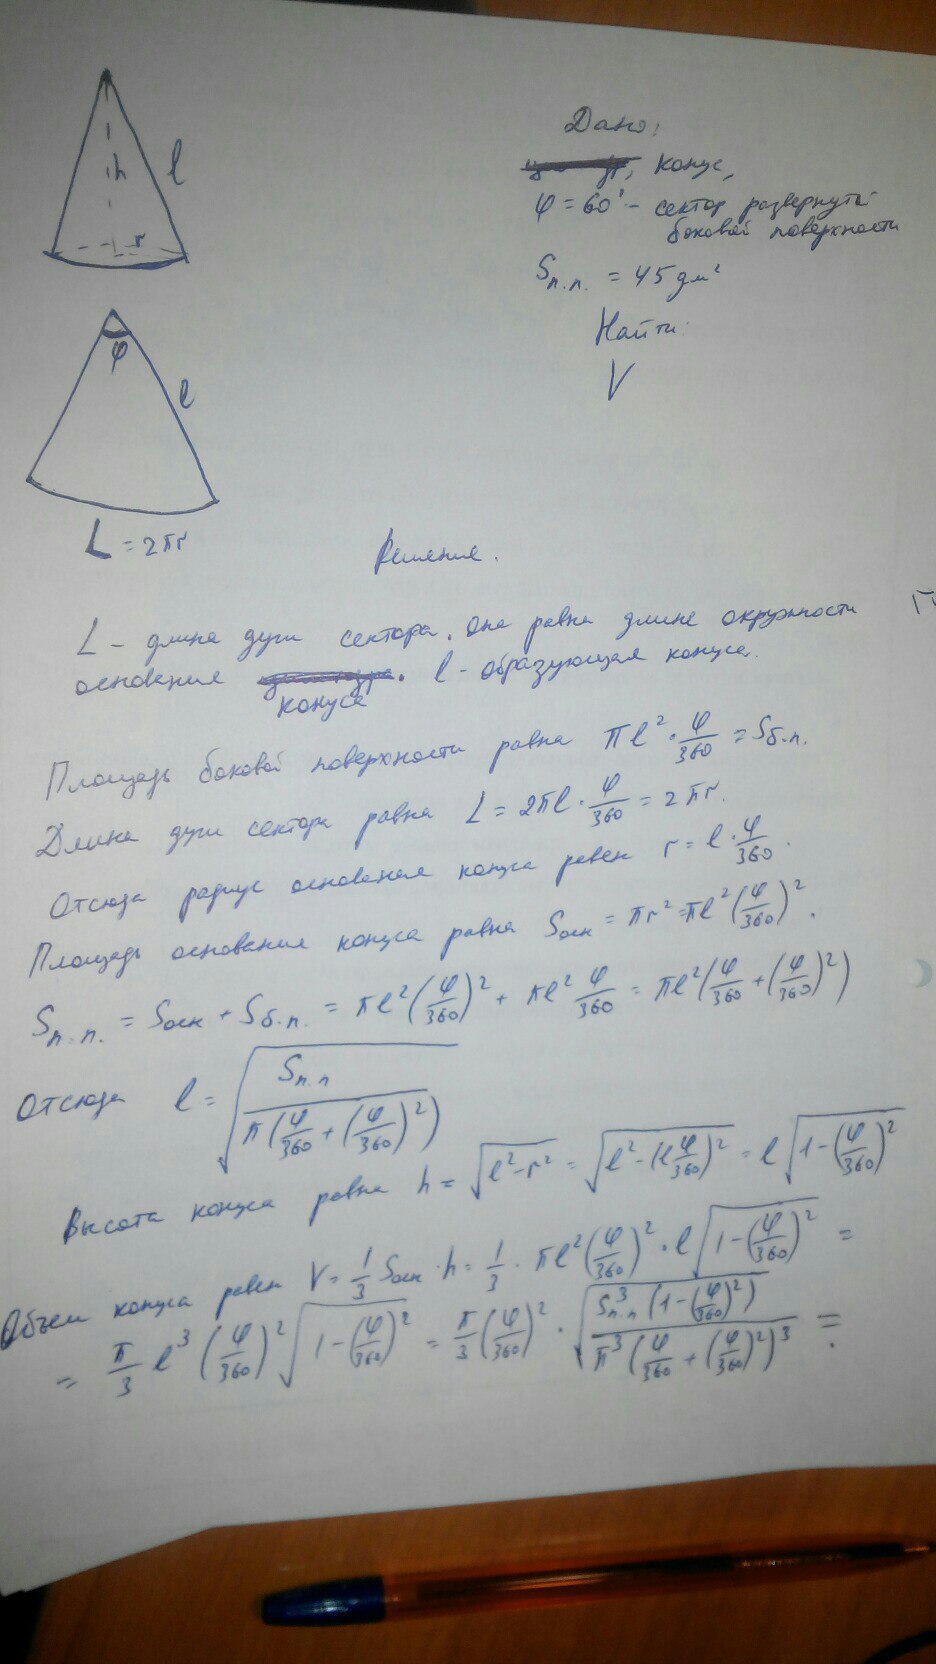 h
l
r
φ
l
L = 2πr
Дано:
конус,
φ = 60° - сектор развернутой
боковой поверхности
Sп.п. = 45 дм²
Найти:
V
Решение.
L - длина дуги сектора. Она равна длине окружности
основания конуса. l - образующая конуса.
Площадь боковой поверхности равна πl² · φ/360 = Sб.п.
Длина дуги сектора равна L = 2πl · φ/360 = 2πr.
Отсюда радиус основания конуса равен r = l · φ/360.
Площадь основания конуса равна Sосн = πr² = πl²(φ/360)².
Sп.п. = Sосн + Sб.п. = πl²(φ/360)² + πl² φ/360 = πl²(φ/360 + (φ/360)²)
Отсюда l = √(Sп.п / (π(φ/360 + (φ/360)²)))
Высота конуса равна h = √(l² - r²) = √(l² - (l φ/360)²) = l√(1 - (φ/360)²)
Объем конуса равен V = 1/3 Sосн · h = 1/3 · πl²(φ/360)² · l√(1 - (φ/360)²) =
= π/3 l³ (φ/360)² √(1 - (φ/360)²) = π/3 (φ/360)² · √(Sп.п³ (1 - (φ/360)²) / (π³ (φ/360 + (φ/360)²)³)) =